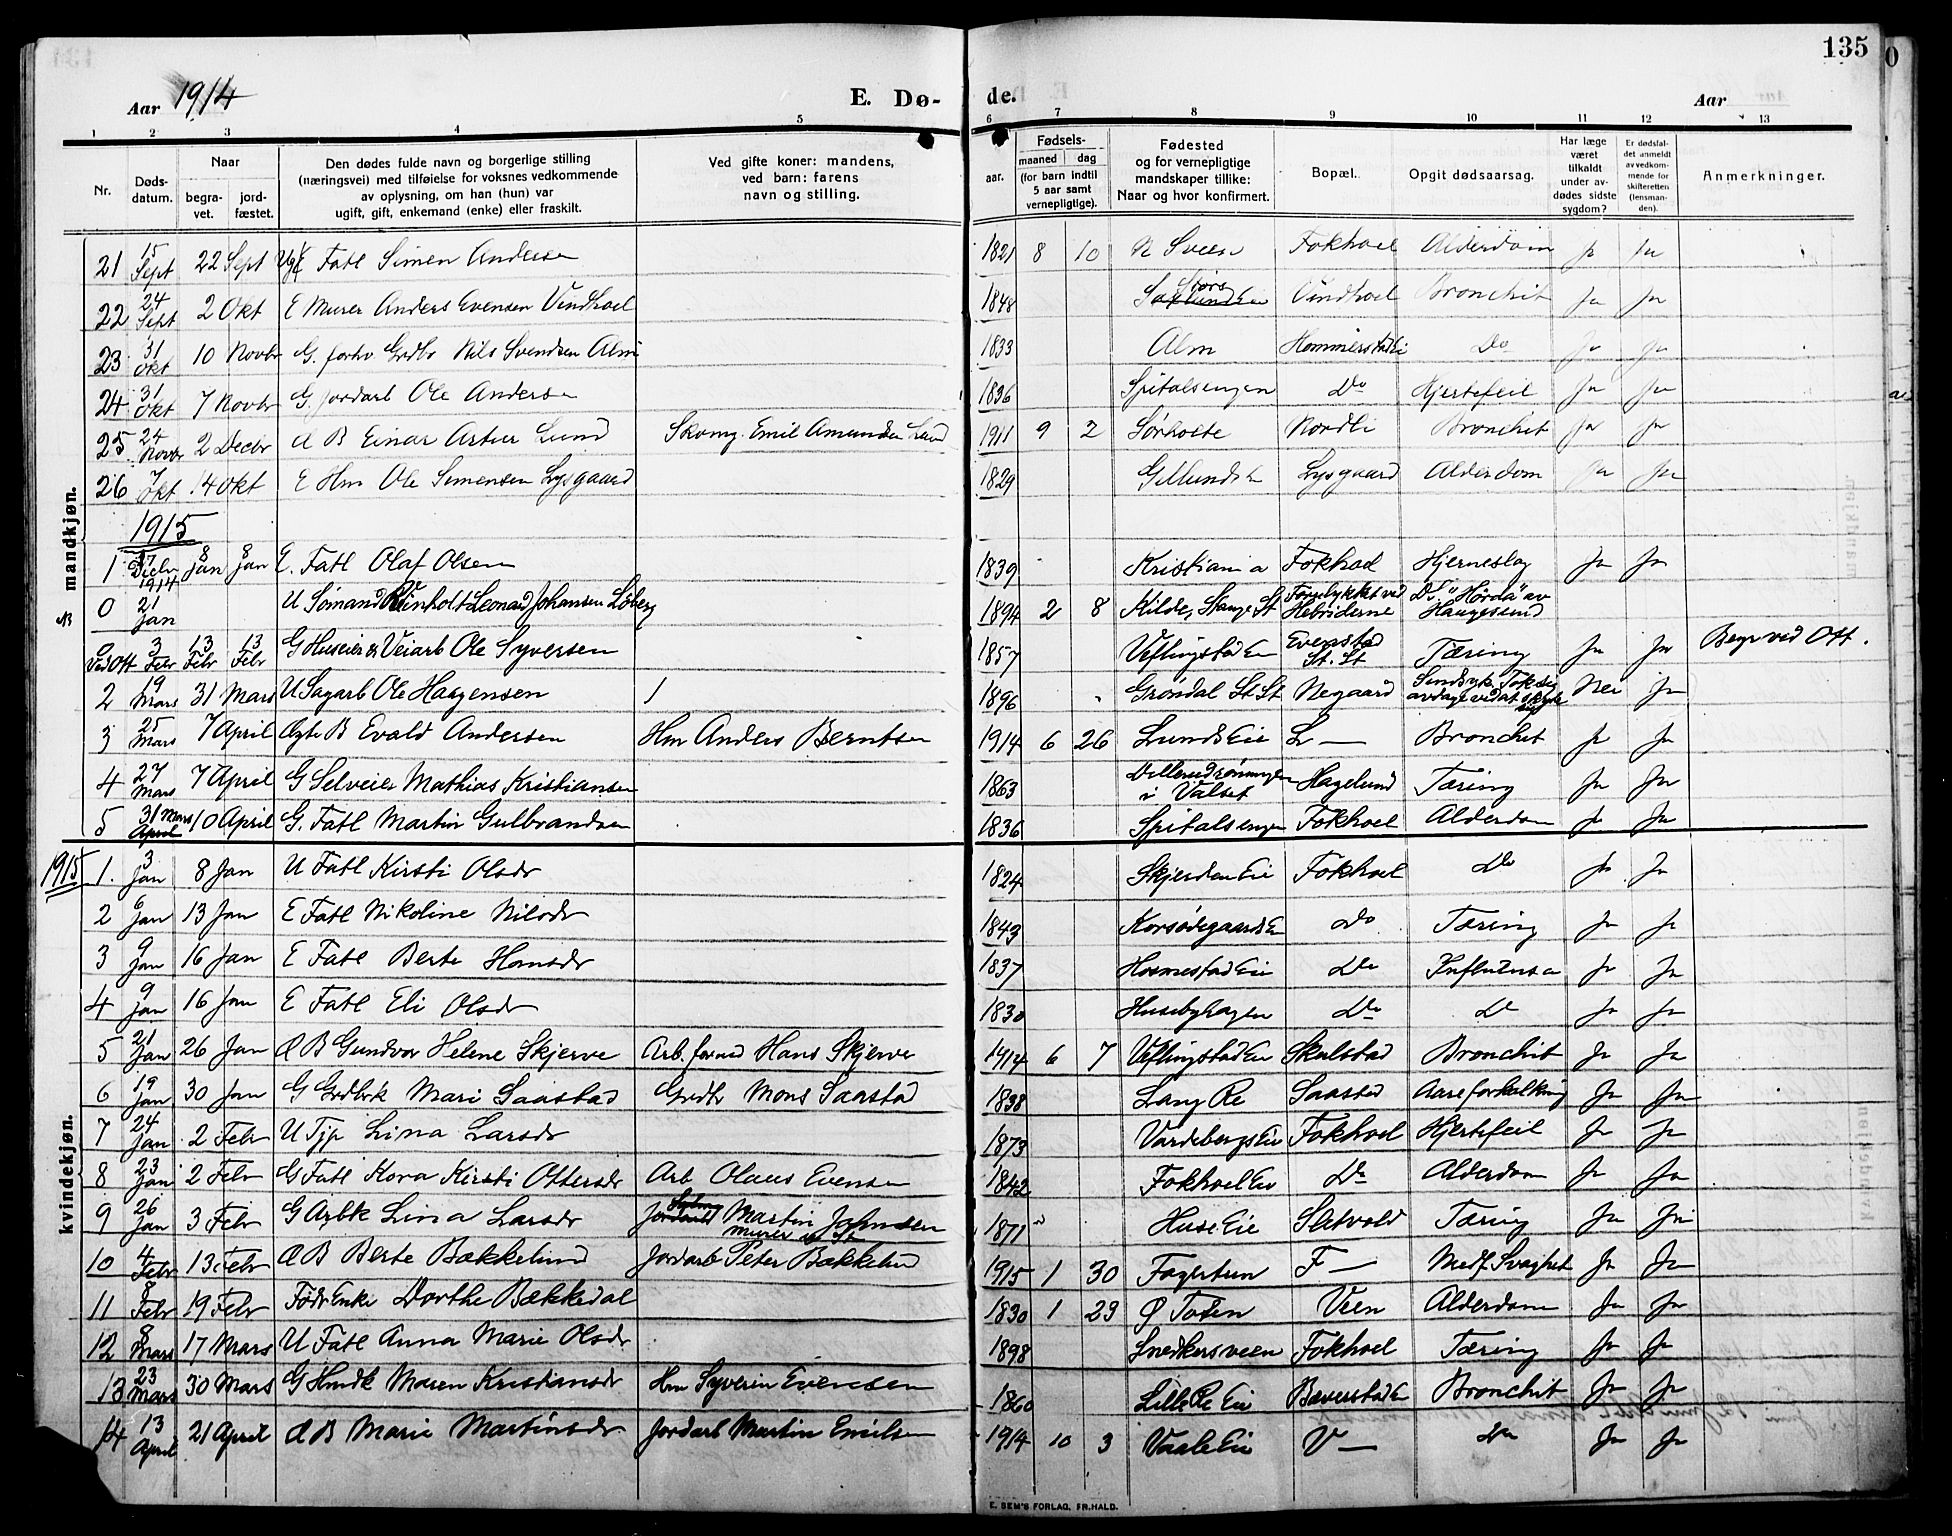 135
Aar 1914
E. Dø-
de.
Aar
1 2 3 4 5 6 7 8 9 10 11 12 13
Nr.
Døds-
datum.
Naar
begra-
vet.
jord-
fæstet.
Den dødes fulde navn og borgerlige stilling
(næringsvei) med tilføielse for voksnes vedkommende
av oplysning, om han (hun) var
ugift, gift, enkemand (enke) eller fraskilt.
Ved gifte koner: mandens,
ved barn: farens
navn og stilling.
aar.
Fødsels-
maaned dag
(for barn indtil
5 aar samt
vernepligtige).
Fødested
og for vernepligtige
mandskaper tillike:
Naar og hvor konfirmert.
Bopæl.
Opgit dødsaarsag.
Har læge
været
tilkaldt
under av-
dødes sidste
sygdom?
Er dødsfal-
det anmeldt
av vedkom-
mende for
skifteretten
(lensman-
den).
Anmerkninger.
mandkjøn.
21 15 Sept 22 Sept Fatl Simen Andersen 1821 8 10 N Sveen Fokhoel Alderdom Ja Ja
22 24 Sept 2 Okt E Murer Anders Evensen Vindhoel 1848 Vindhoel Bronchit Ja Ja
23 31 Okt 10 Novbr G. forhv Grdbr Nils Svendsen Alm 1833 Alm Do Ja Ja
24 31 Okt 7 Novbr G. Jordarb Ole Andersen 1836 Spitalsengen Do Hjertefeil Ja Ja
25 24 Novbr 2 Decbr Æ B Einar Artur Lund Skomg. Emil Amundsen Lund 1911 9 2 Sørholte Nordli Bronchit Ja Ja
26 7 Okt 14 Okt E Hm Ole Simensen Lysgaard 1829 Lysgaard Alderdom Ja Ja
1915
1 Decbr 1914 8 Jan 8 Jan E. Fatl Olaf Olsen 1839 Kristiania Fokhoel Hjerneslag Ja Ja
0 21 Jan U Sømand Reinholt Leonard Johansen Løberg 1894 2 8 Kilde, Stange St Forulykket ved Hebriderne D/S "Hörda" av Haugesund
0 Ved Ott 3 Febr 13 Febr 13 Febr G Huseier & Veiarb Ole Syversen 1857 Veflingstad Ei Evenstad St. St Tæring Ja Ja Begr ved Ott.
2 19 Mars 31 Mars U Sagarb Ole Haagensen 1 1896 Grøndal St. St Negaard Nei Ja
3 25 Mars 7 April Ægte B Evald Andersen Hm Anders Berntsen 1914 6 26 Lunds Eie L — Bronchit Ja Ja
4 27 Mars 7 April G Selveier Mathias Kristiansen 1863 i Valset Hagelund Tæring Ja Ja
5 31 Mars April 10 April G. Fatl Martin Gulbrandsen 1836 Spitalsengen Fokhoel Alderdom Ja Ja
kvindekjøn.
1915 1. 3 Jan 8 Jan U Fatl Kirsti Olsdr 1824 Skjerden Eie Fokhoel Do Ja Ja
2 6 Jan 13 Jan E Fatl Nikoline Nilsdr 1843 Korsødegaards Ei Do Tæring Ja Ja
3 9 Jan 16 Jan E Fatl Berte Hansdr 1837 Hosmestad Eie Do Influensa Ja Ja
4 9 Jan 16 Jan E Fatl Eli Olsdr 1830 Husebyhagen Do Do Ja Ja
5 21 Jan 26 Jan Æ B Gundvor Helene Skjerve Arb. formd Hans Skjerve 1914 6 7 Veflingstad Eie Skulstad Bronchit Ja Ja
6 19 Jan 30 Jan G Grdbrk Mari Saastad Grdbr Mons Saastad 1838 Lang Re Saastad Aareforkalkning Ja Ja
7 24 Jan 2 Febr U Tjp Lina Larsdr 1873 Vardebergs Eie Fokhoel Hjertefeil Ja Ja
8 23 Jan 2 Febr G Fatl Kora Kirsti Ottersdr Arb Olaus Evensen 1842 Fokhoel Eie Do Alderdom Ja Ja
9 26 Jan 3 Febr G Arbk Lina Larsdr Martin Johnsen 1871 Huse Eie Sletvold Tæring Ja Ja
10 4 Febr 13 Febr Æ B Berte Bækkelund Jordarb Peter Bækkelund 1915 1 30 Fagertun F — Medf. Svaghet Ja Ja
11 8 Febr 19 Febr Føдr Enke Dorthe Bækkedal 1830 1 29 Ø Toten Veen Alderdom Ja Ja
12 8 Mars 17 Mars U Fatl Anna Marie Olsdr 1898 Snedkersveen Fokhoel Tæring Ja Ja
13 23 Mars 30 Mars G Hmdk Maren Kristiansdr Hm Syverin Evensen 1860 Lille Re Eie Baverstad Ei Bronchit Ja Ja
14 13 April 21 April Æ B Marie Martinsdr Jordarb Martin Emilsen 1914 10 3 Vaale Eie V — Do Ja Ja
E. SEM'S FORLAG, FR.HALD.